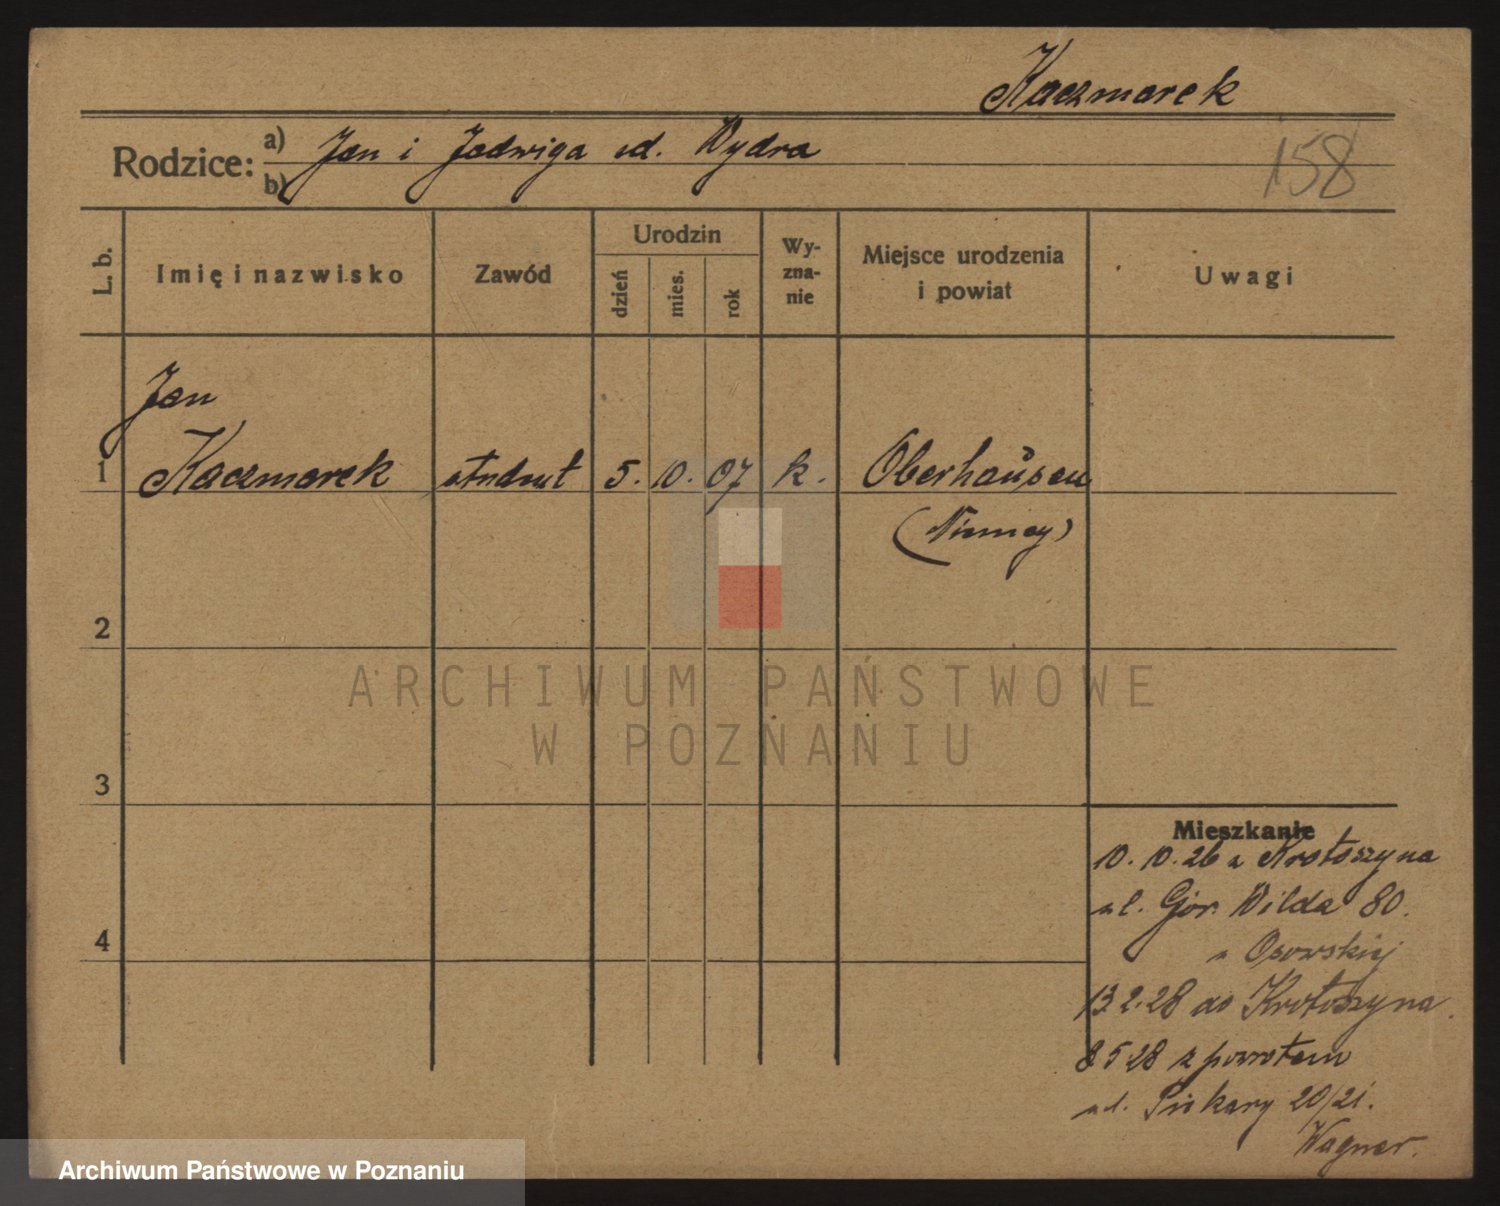 Kaczmarek
158
Rodzice: a) Jan i Jadwiga
b) Wydra
L. b.
Imię i nazwisko
Zawód
Urodzin
dzień
mies.
rok
Wy-
zna-
nie
Miejsce urodzenia
i powiat
Uwagi
Jan
1 Kaczmarek student 5. 10. 07 k. Oberhausen
(Niemcy)
2
3
4
Mieszkanie
10. 10. 26 z Krotoszyna
ul. Gór. Wilda 80.
13 2. 28 do Krotoszyna.
8 5 28 z powrotem
ul. Piekary 20/21.
Wagner.
ARCHIWUM PAŃSTWOWE
W POZNANIU
Archiwum Państwowe w Poznaniu